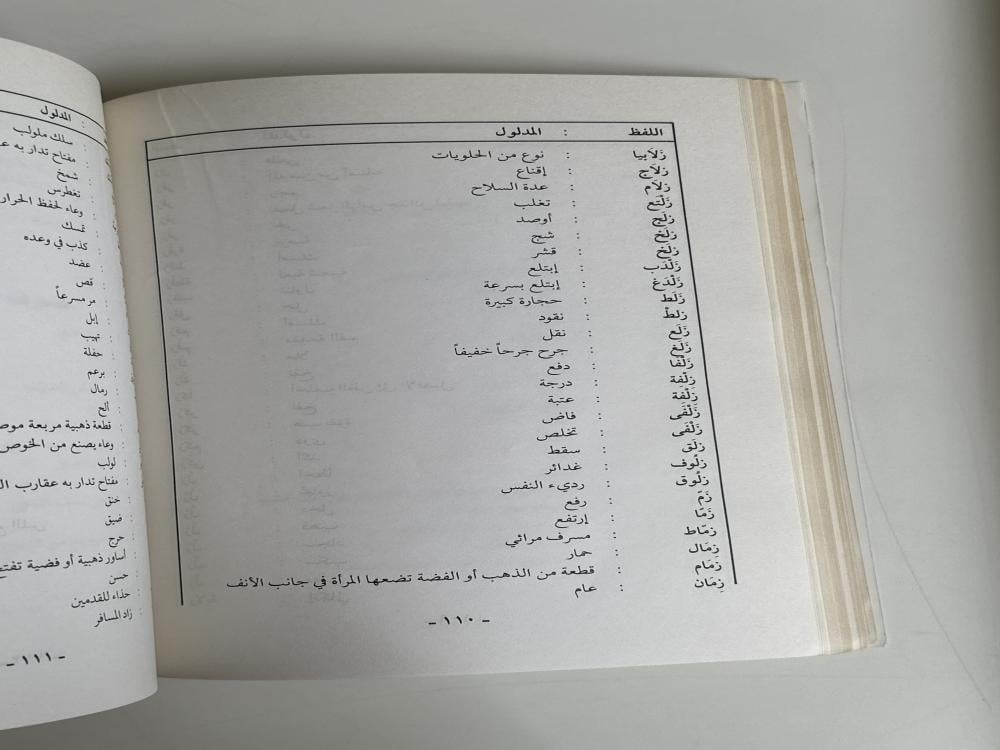 اللفظ : المدلول
زَلَابيا : نوع من الحلويات
زلَاج : إقناع
زلَام : عدة السلاح
زَلْتع : تغلب
زلَج : أوصد
زلَخ : شج
زلَخ : قشر
زَلْدَب : إبتلع
زَلْدَغ : إبتلع بسرعة
زَلَط : حجارة كبيرة
زلطْ : نقود
زَلَع : نقل
زَلَغ : جرح جرحاً خفيفاً
زَلْفَا : دفع
زلْفِة : درجة
زَلْفِة : عتبة
زَلْفَى : فاض
زَلْفَى : تخلص
زلَق : سقط
زلُوف : غدائر
زلُوق : رديء النفس
زَمّ : رفع
زَمّا : إرتفع
زمّاط : مسرف مرائي
زمَال : حمار
زمَام : قطعة من الذهب أو الفضة تضعها المرأة في جانب الأنف
زِمَان : عام
- ١١٠ -
: المدلول
سلك ملولب
: مفتاح تدار به
: شمخ
: تغطرس
: وعاء لحفظ
: تمسك
: كذب في وعده
: عضد
: قص
: مر مسرعاً
: إبل
: تهيب
: حفلة
: برعم
: رمال
: ألح
: قطعة ذهبية مربعة
: وعاء يصنع من الخوص
: لولب
: مفتاح تدار به عقارب
: خنق
: ضيق
: حرج
: أساور ذهبية أو فضية
: حسن
: حذاء للقدمين
: زاد المسافر
- ١١١ -